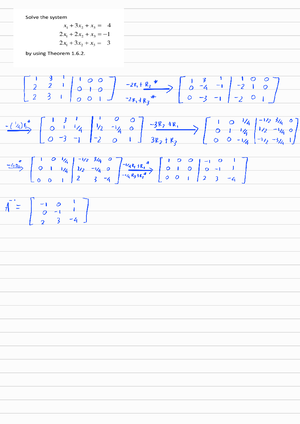 Solve the system
x₁ + 3x₂ + x₃ = 4
2x₁ + 2x₂ + x₃ = −1
2x₁ + 3x₂ + x₃ = 3
by using Theorem 1.6.2.
[ 1 3 1 | 1 0 0 ; 2 2 1 | 0 1 0 ; 2 3 1 | 0 0 1 ] -2R₁+R₂* -2R₁+R₃* → [ 1 3 1 | 1 0 0 ; 0 -4 -1 | -2 1 0 ; 0 -3 -1 | -2 0 1 ]
-(1/4)R₂* → [ 1 3 1 | 1 0 0 ; 0 1 1/4 | 1/2 -1/4 0 ; 0 -3 -1 | -2 0 1 ] -3R₂+R₁ 3R₂+R₃ → [ 1 0 1/4 | -1/2 3/4 0 ; 0 1 1/4 | 1/2 -1/4 0 ; 0 0 -1/4 | 1 ]
[ 1 0 1/4 | -1/2 3/4 0 ; 0 1 1/4 | 1/2 -1/4 0 ; 0 0 1 | 2 3 -4 ] → [ 1 0 0 | -1 0 1 ; 0 1 0 | 0 -1 1 ; 0 0 1 | 2 3 -4 ]
A⁻¹ = [ -1 0 1 ; 0 -1 1 ; 2 3 -4 ]